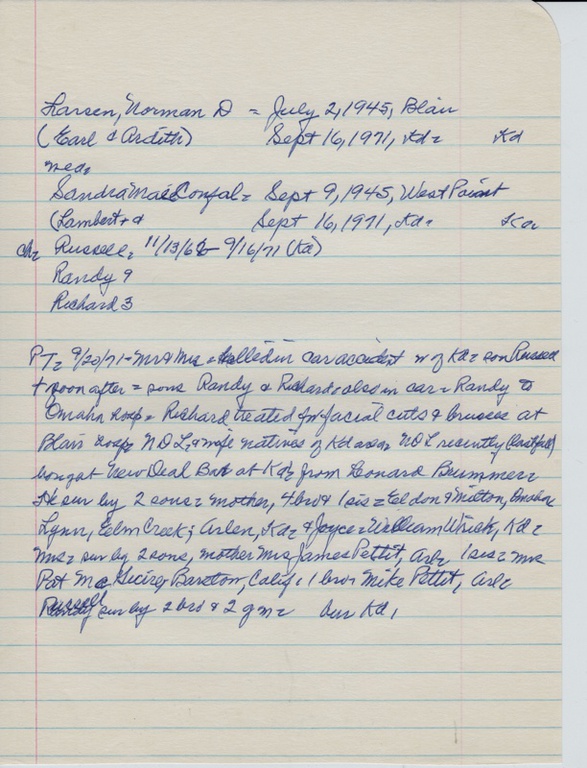 Larsen, Norman D = July 2, 1945, Blair
(Earl & Ardith) Sept 16, 1971, Kd= Kd
med,
Sandra Mae Confal= Sept 9, 1945, West Point
(Lambert + & Sept 16, 1971, Kd=
ch= Russell= 11/13/62- 9/16/71 (Kd)
Randy 9
Richard 3
PT= 9/20/71 = Mr & Mrs = killed in car accident w of Kd= son Russell
+ soon after = sons Randy & Richard also in car = Randy to
Omaha hosp = Richard treated for facial cuts & bruses at
Blair hosp= NDL, & wife natives of Kd area= NDL recently (last fall)
bought New Deal Bar at Kd= from Leonard Brummer=
He sur by 2 sons= mother, 4 bro & 1 sis= Eldon & Milton, Omaha
Lynn, Elm Creek; Arlen, Kd= & Joyce= William Wrick, Kd=
Mrs= sur by 2 sons, mother Mrs James Pettit, Arl= 1 sis= Mrs
Pat Mc Barstow, Calif, 1 bro= Mike Pettit, Arl=
Russell sur by 2 bro & 2 gm= bur Kd,